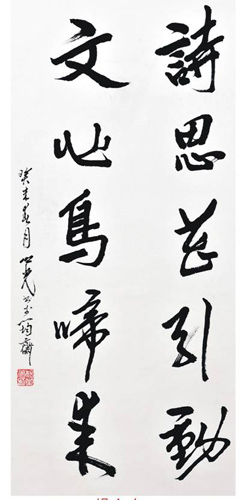 詩思花引動
文心鳥啼来
癸未春月